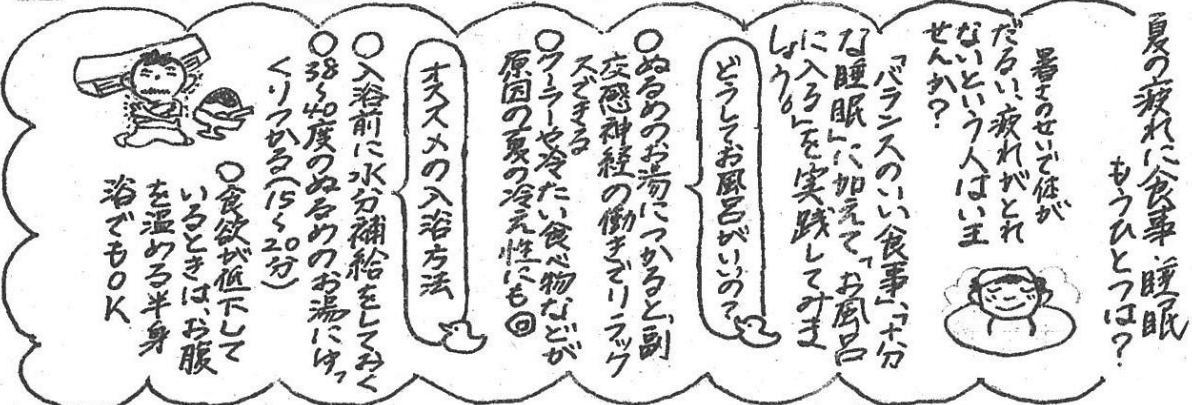 夏の疲れに食事、睡眠
もうひとつは?
暑さのせいで体が
だるい、疲れがとれ
ないという人はいま
せんか?
「バランスのいい食事」、「十分
な睡眠」に加えて「お風呂
に入る」を実践してみま
しょう。
どうしてお風呂がいいの?
○ぬるめのお湯につかると、副
交感神経の働きでリラック
スできる
○クーラーや冷たい食べ物などが
原因の夏の冷え性にも◎
オススメの入浴方法
○入浴前に水分補給をしておく
○38〜40度のぬるめのお湯にゆっ
くりつかる(15〜20分)
○食欲が低下して
いるときは、お腹
を温める半身
浴でもOK